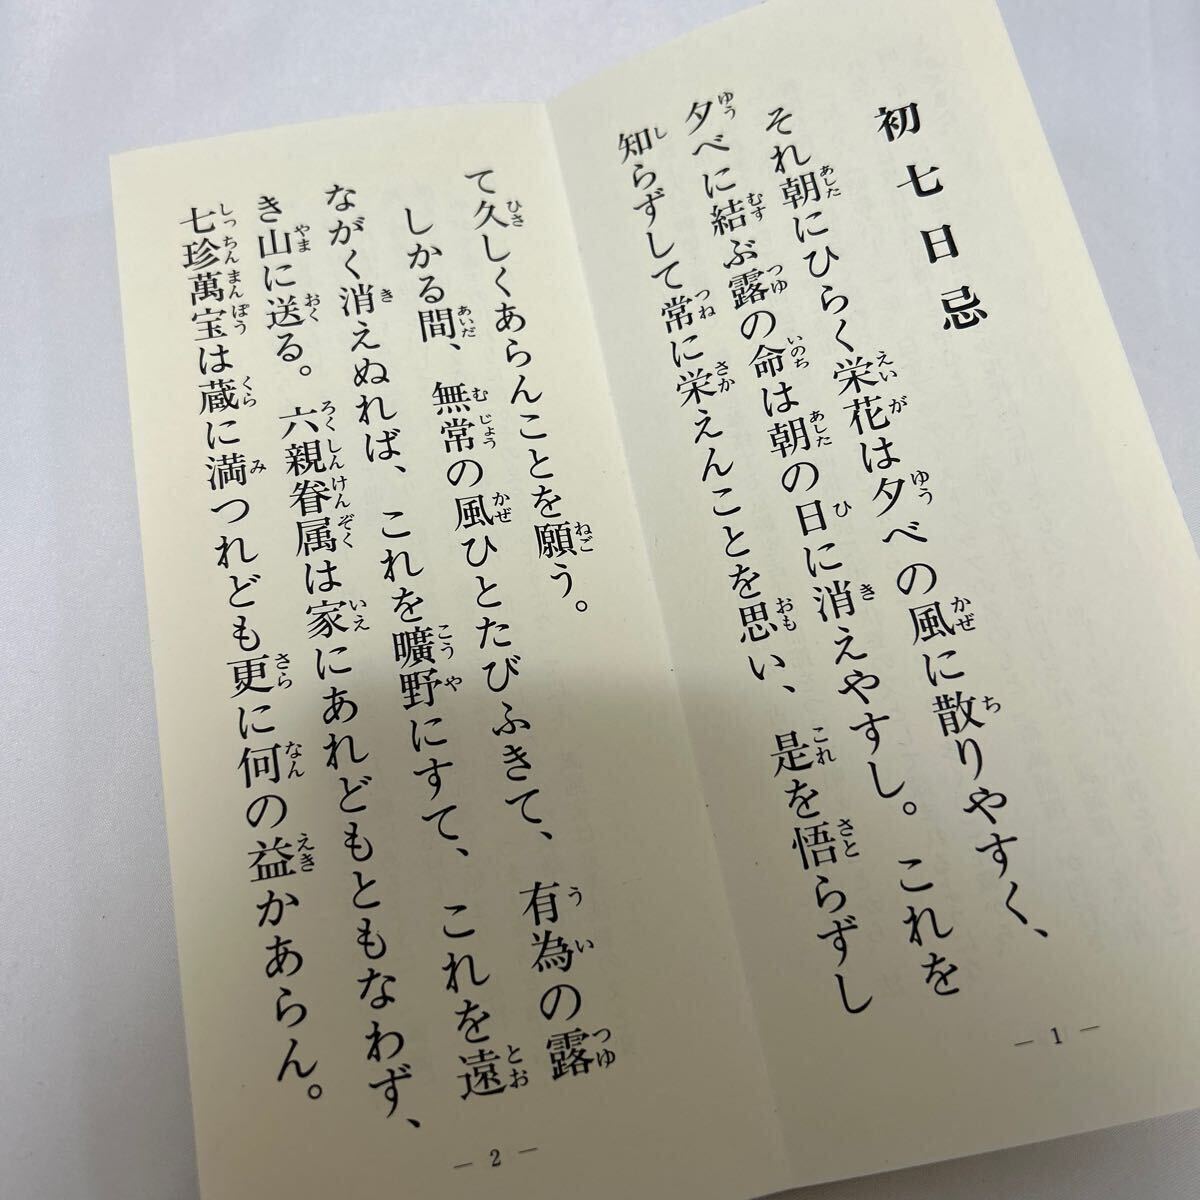 初七日忌
それ朝にひらく栄花は夕べの風に散りやすく、
夕べに結ぶ露の命は朝の日に消えやすし。これを
知らずして常に栄えんことを思い、是を悟らずし
— 1 —
て久しくあらんことを願う。
しかる間、無常の風ひとたびふきて、有為の露
ながく消えぬれば、これを曠野にすて、これを遠
き山に送る。六親眷属は家にあれどもともなわず、
七珍萬宝は蔵に満つれども更に何の益かあらん。
— 2 —